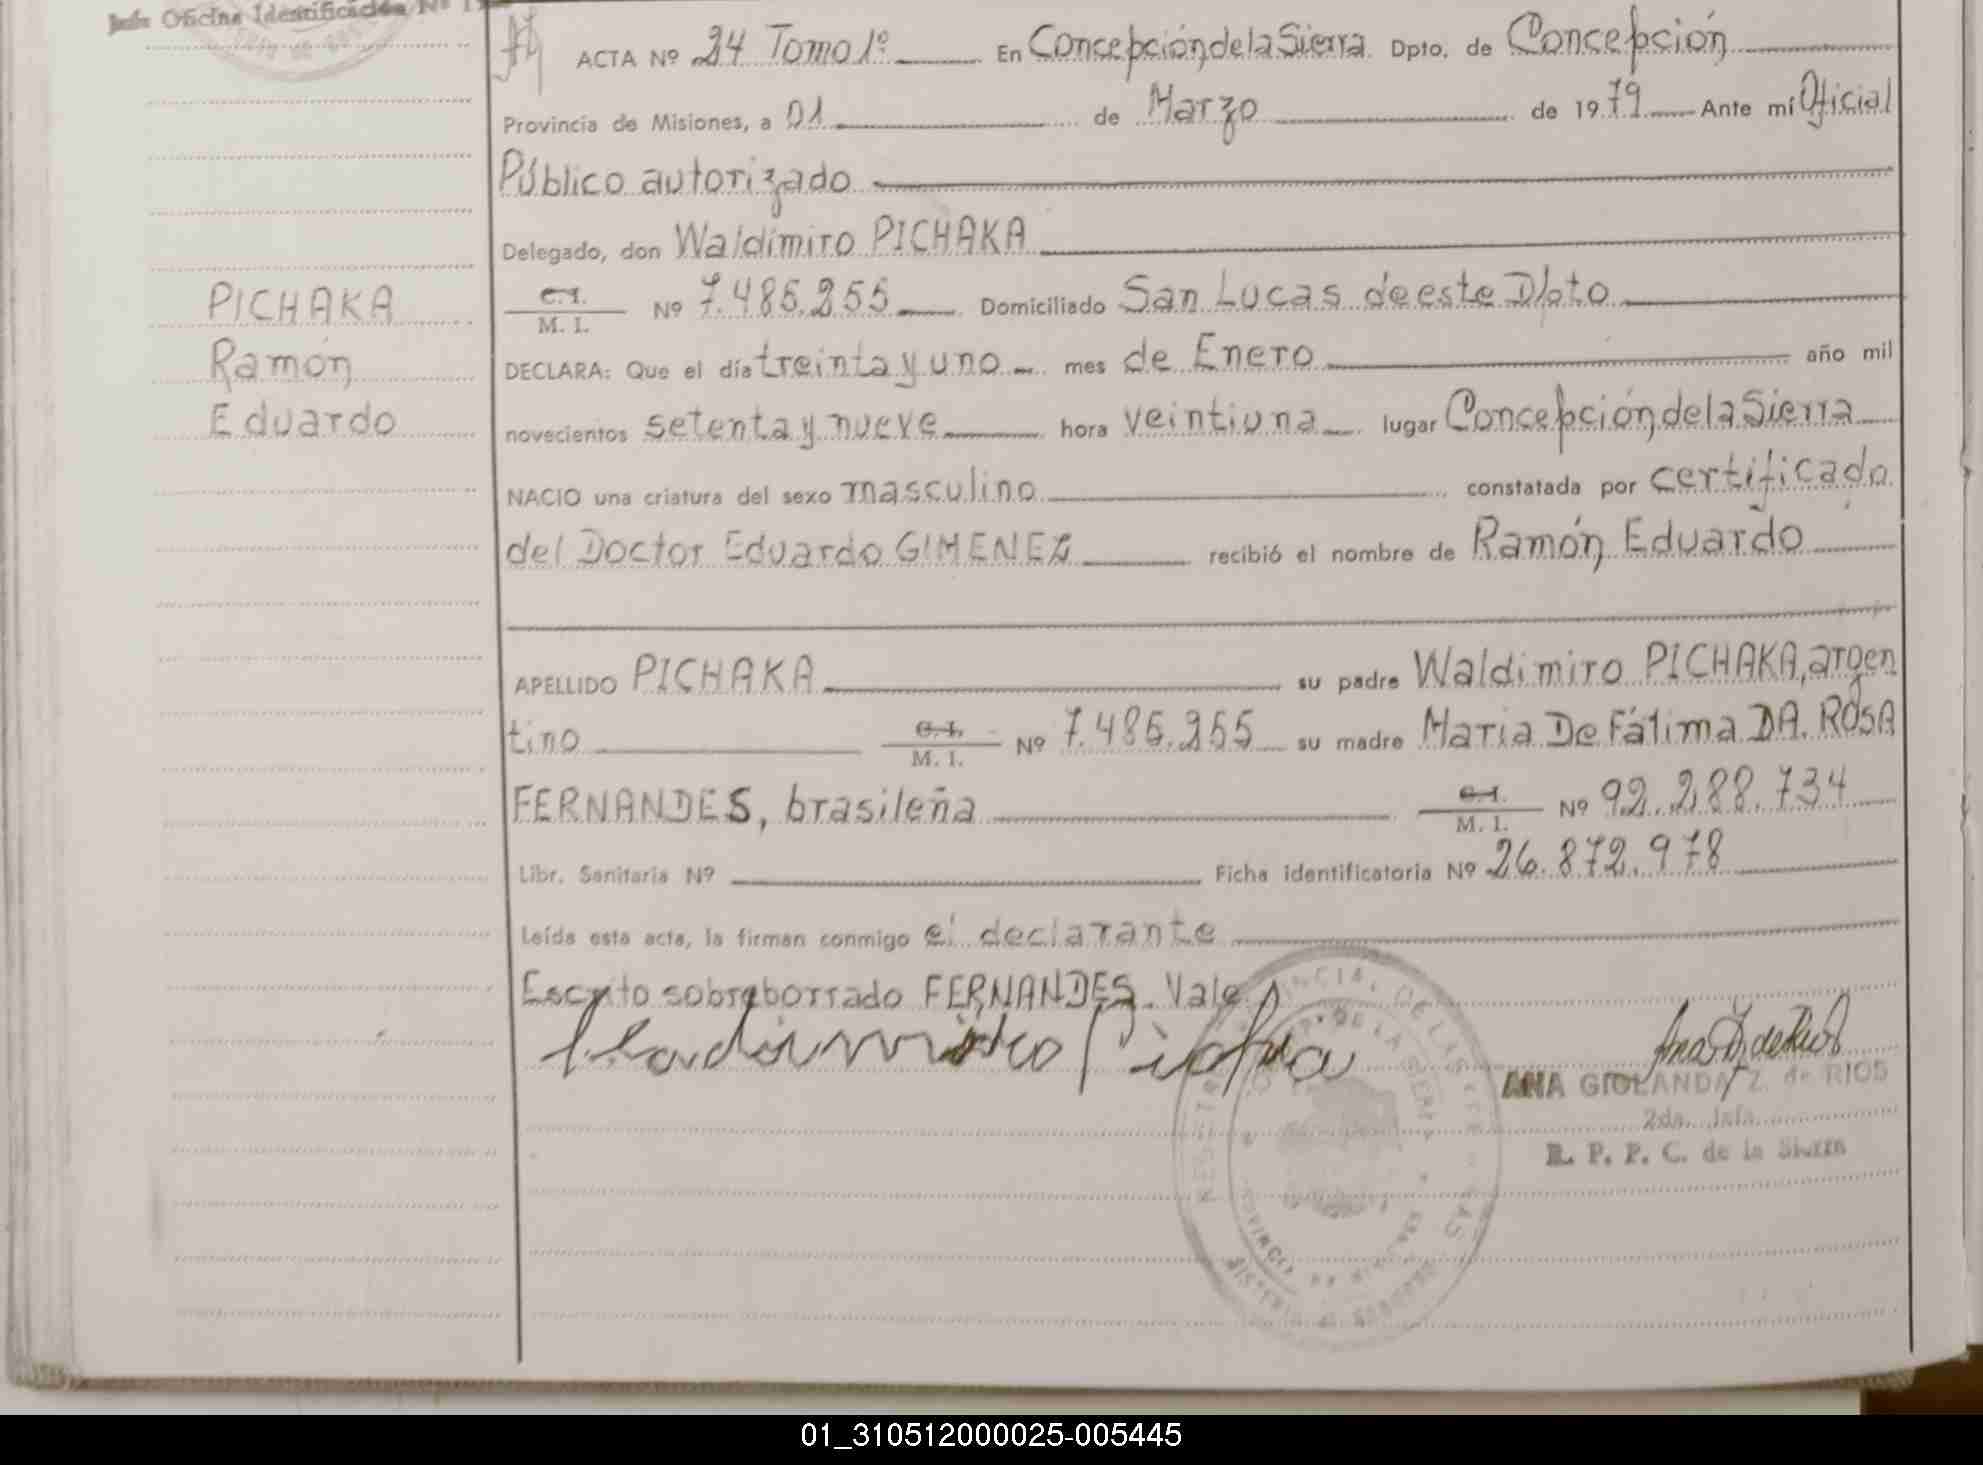 Jefe Oficina Identificación Nº
ACTA Nº 24 Tomo 1º En Concepción de la Sierra Dpto. de Concepción
Provincia de Misiones, a 01 de Marzo de 1979 Ante mí Oficial
Público autorizado
Delegado, don Waldimiro PICHAKA
C.I. M. I. Nº 7.485.255 Domiciliado San Lucas de este Dpto
PICHAKA
Ramón
Eduardo
DECLARA: Que el día treinta y uno mes de Enero año mil
novecientos setenta y nueve hora veintiuna lugar Concepción de la Sierra
NACIO una criatura del sexo masculino constatada por certificado
del Doctor Eduardo GIMENEZ recibió el nombre de Ramón Eduardo
APELLIDO PICHAKA su padre Waldimiro PICHAKA, argen
tino C.I. M. I. Nº 7.485.255 su madre Maria De Fátima DA ROSA
FERNANDES, brasileña C.I. M. I. Nº 92.288.734
Libr. Sanitaria Nº Ficha identificatoria Nº 26.872.978
Leída esta acta, la firman conmigo el declarante
Escrito sobreborrado FERNANDES. Vale
ANA GIOLANDA Z. de RIOS
2da. Jefa
R. P. P. C. de la Sierra
01_310512000025-005445